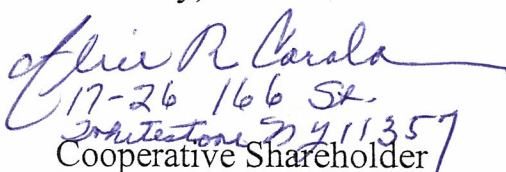 R
17-26 166 St.
Whitestone NY 11357
Cooperative Shareholder